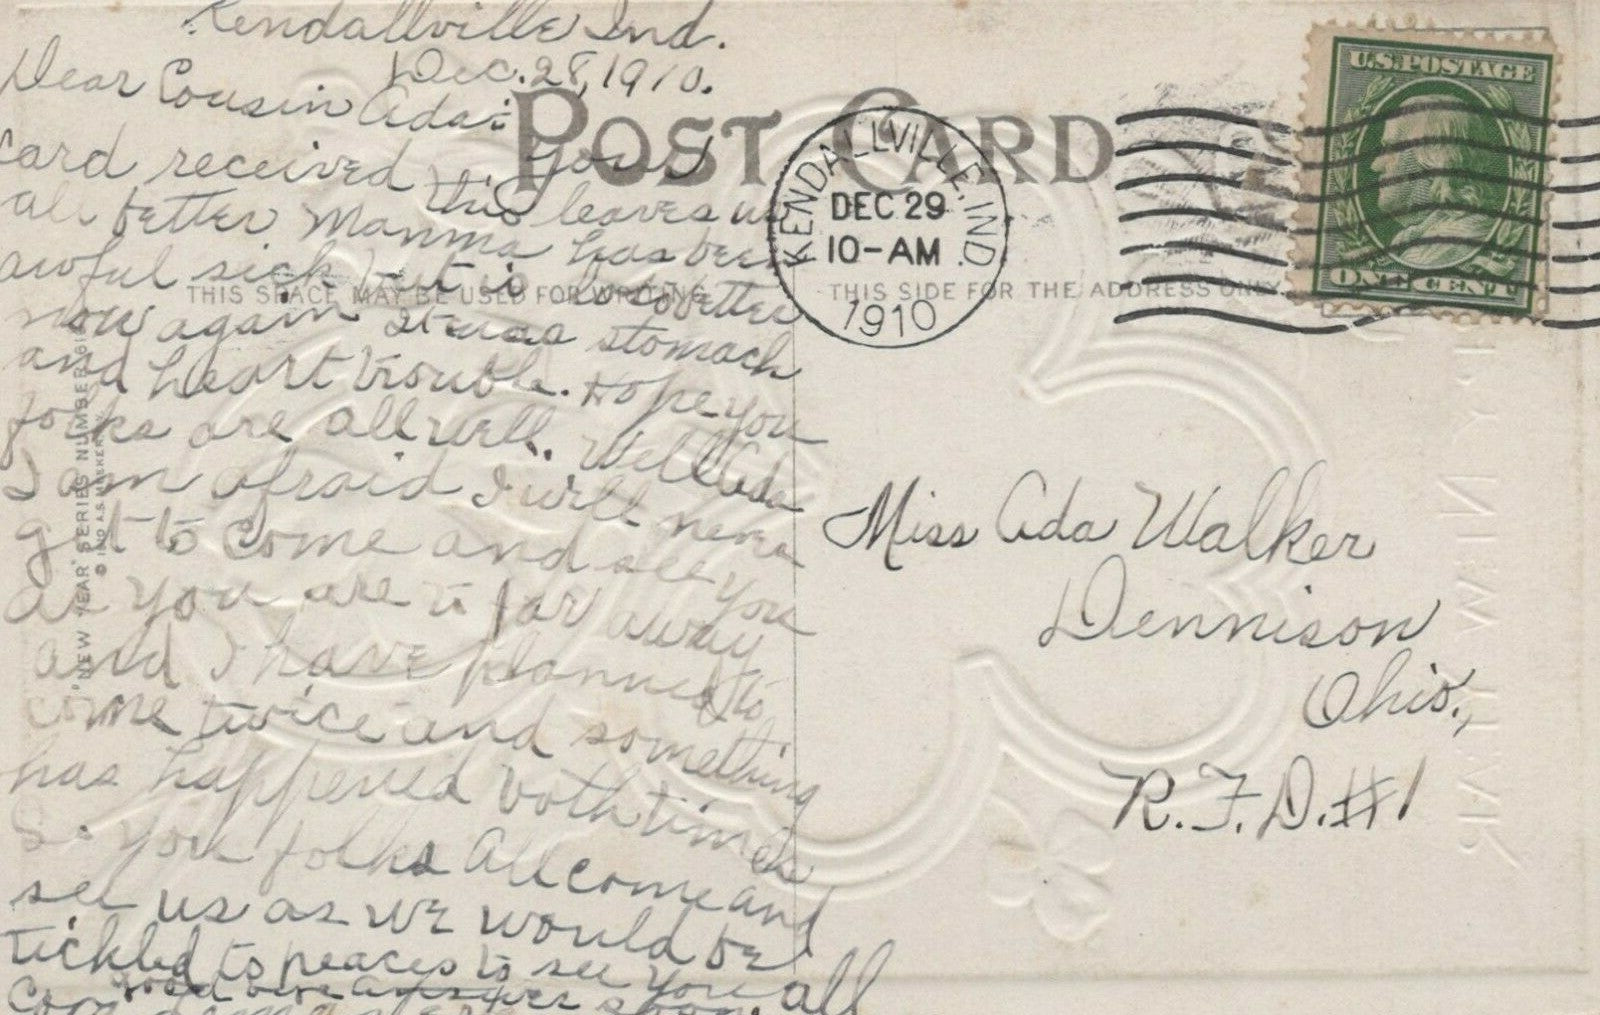 Kendallville Ind.
Dec. 28, 1910.
Dear Cousin Ada:
Your
card received this leaves us
all better Mamma has been
awful sick but is lots better
now again it was stomach
and heart trouble. Hope you
folks are all well. Well Ada
I am afraid I will never
get to come and see you
as you are to far away
and I have planned to
come twice and something
has happened both times
So you folks all come and
see us as we would be
tickled to peaces to see you all
Good bye answer soon.
POST CARD
THIS SPACE MAY BE USED FOR WRITING
THIS SIDE FOR THE ADDRESS ONLY
KENDALLVILLE, IND.
DEC 29
10-AM
1910
U.S. POSTAGE
ONE CENT
Miss Ada Walker
Dennison
Ohio.,
R.F.D. #1
"NEW YEAR" SERIES NUMBER
© 1910